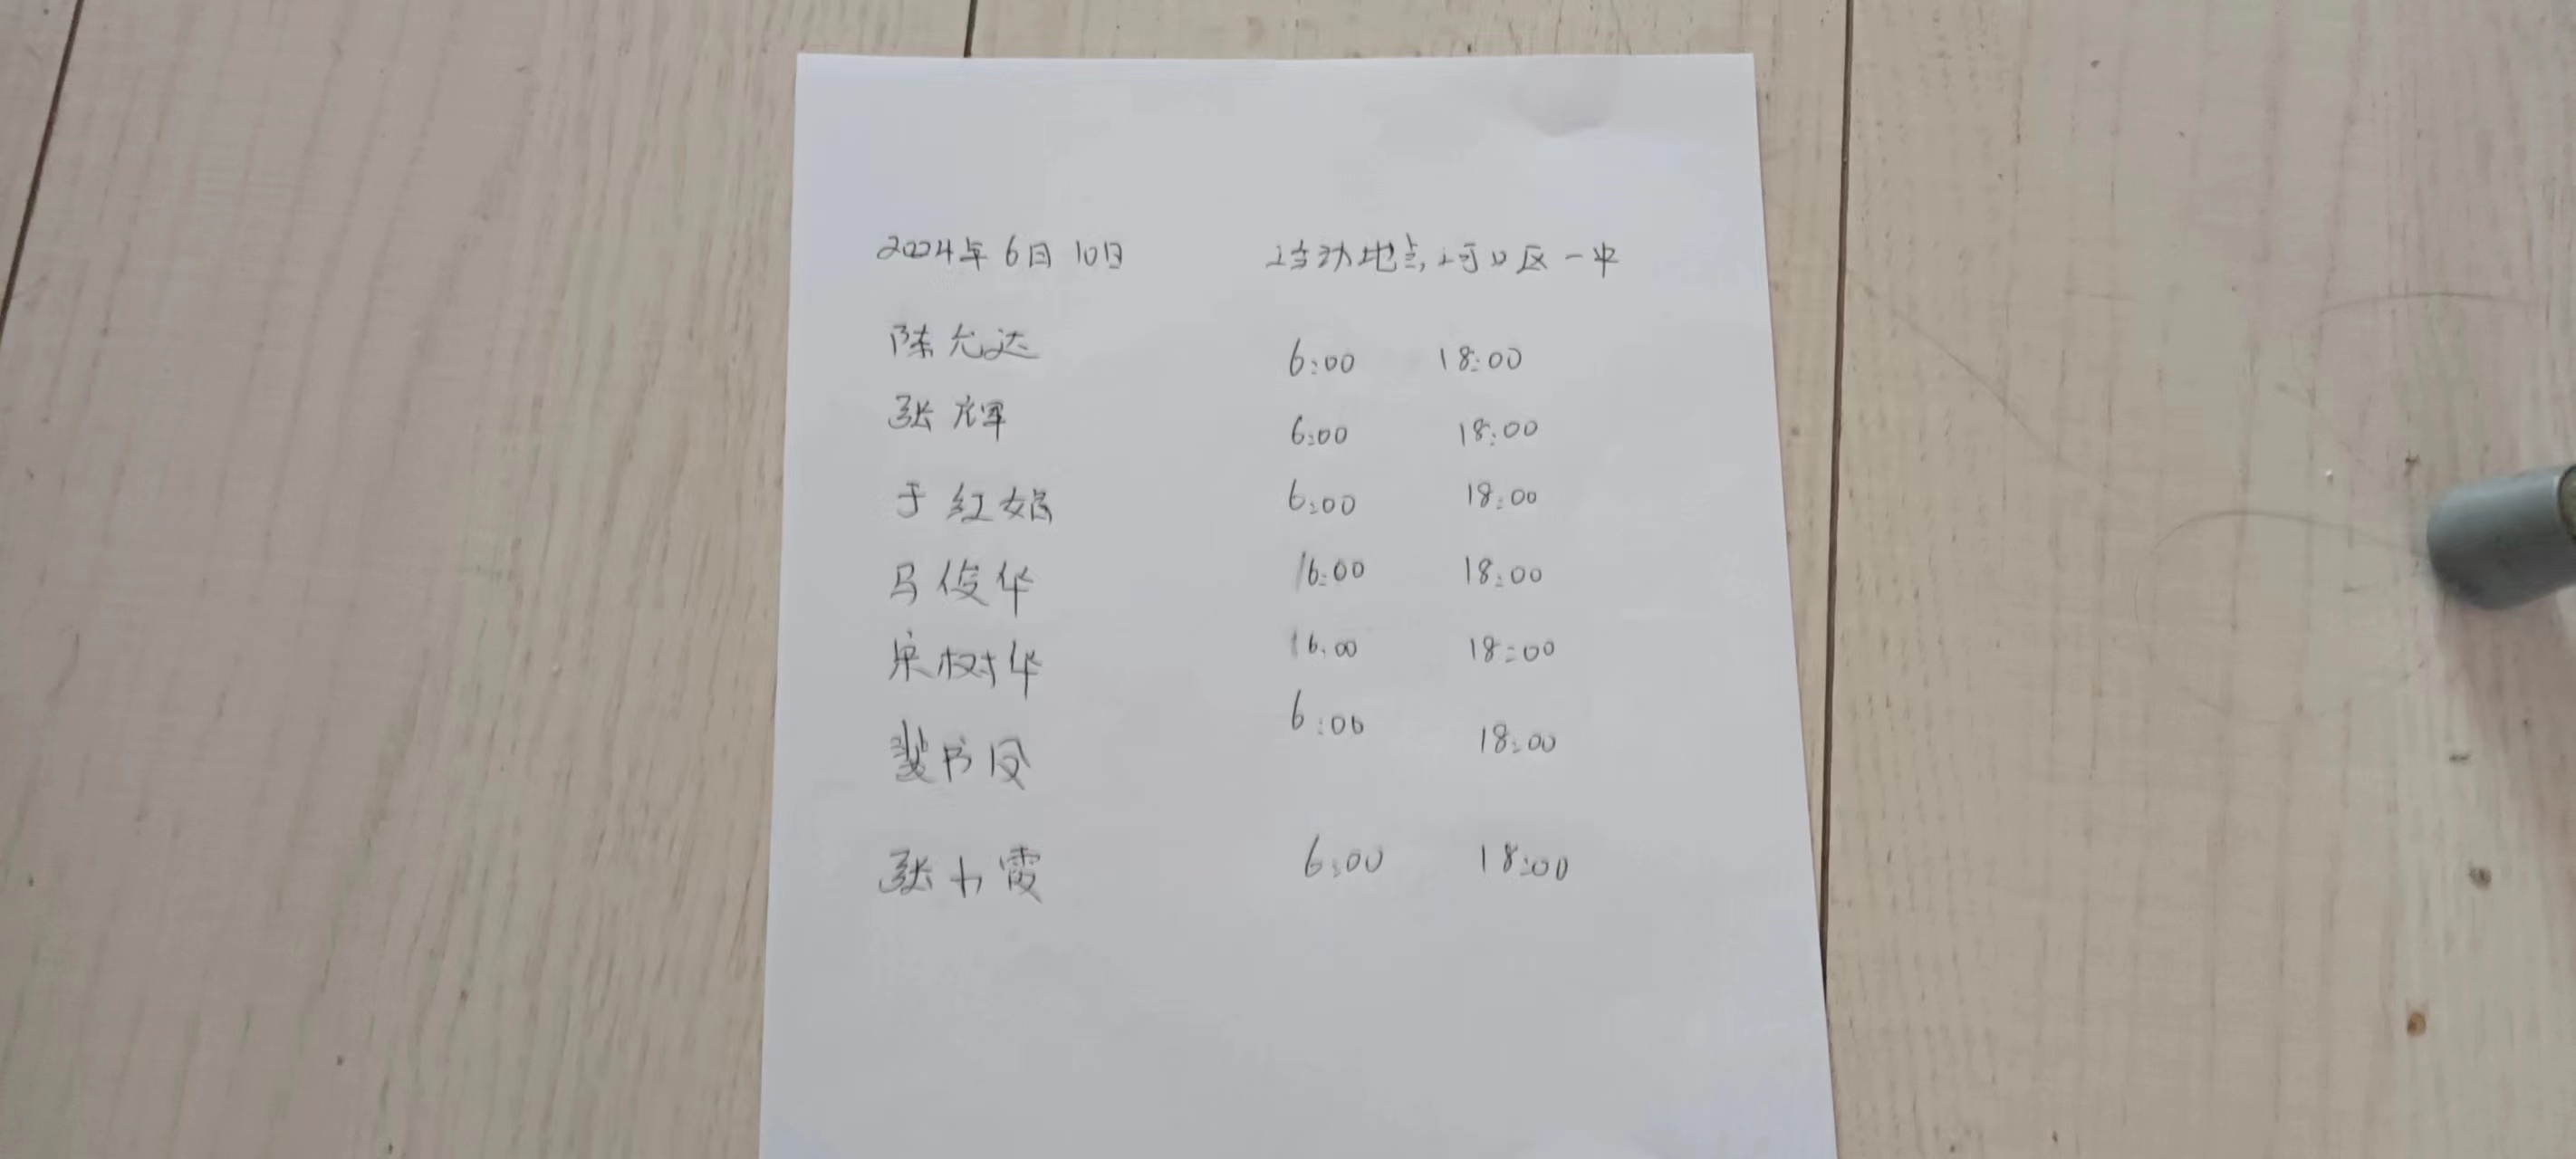 2024年6月10日 活动地点,河口区一中
陈允达 6:00 18:00
张辉 6:00 18:00
于红娟 6:00 18:00
马俊华 16:00 18:00
宋树华 16:00 18:00
裴书凤 6:00 18:00
张小霞 6:00 18:00